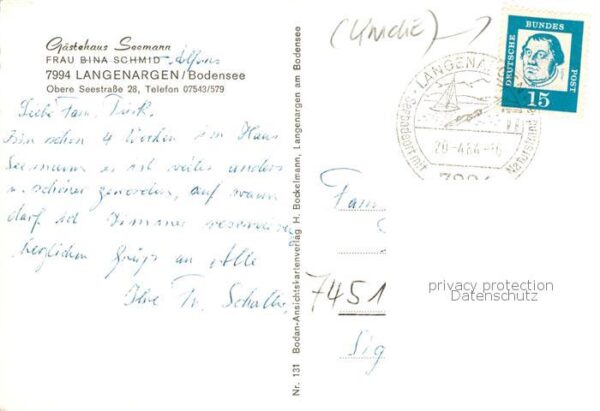 Gästehaus Seemann
FRAU BINA SCHMID Alfons
7994 LANGENARGEN/Bodensee
Obere Seestraße 28, Telefon 07543/579
Liebe Fam.
Bin schon 4 Wochen im Haus
Seemann es ist vieles anders
u. schöner geworden, auf wann
darf ich Zimmer reservieren
herzlichen Grüße an Alle
Ihre Fr.
Nr. 131 Bodan-Ansichtskartenverlag H. Bockelmann, Langenargen am Bodensee
LANGENARGEN
20.-4.64.-
7994
DEUTSCHE BUNDES POST
15
Fam
7451
Sig
privacy protection
Datenschutz